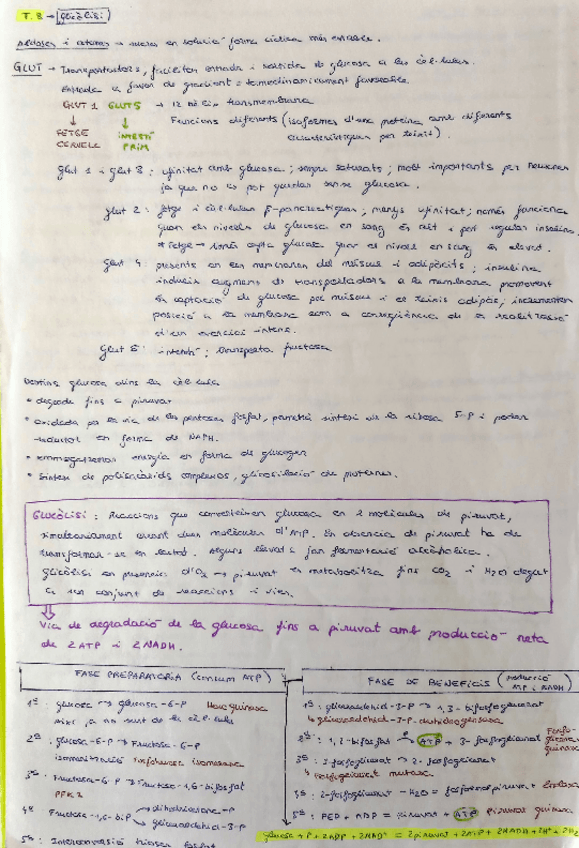 T. 8 → Glicòlisi
Aldoses i cetoses → sucres en solució forma cíclica més estable.
GLUT → Transportadors, faciliten entrada i sortida de glucosa a les cèl·lules.
Entrada a favor de gradient = termodinàmicament favorable.
GLUT 1 GLUT5 → 12 hèlix transmembrana
↓ ↓ Funcions diferents (isoformes d'una proteïna amb diferents
FETGE INTESTÍ característiques per teixit).
CERVELL PRIM
Glut 1 i glut 3: afinitat amb glucosa; sempre saturats; molt importants per neurones
ja que no es pot quedar sense glucosa.
glut 2: fetge i cèl·lules β-pancreàtiques; menys afinitat; només funciona
quan els nivells de glucosa en sang és alt i per regular insulina.
* Fetge → només capta glucosa quan el nivell en sang és elevat.
Glut 4: presents en les membranes del múscul i adipòcits; insulina
indueix augment de transportadors a la membrana promovent
la captació de glucosa per múscul i el teixit adipós; incrementen
posició a la membrana com a conseqüència de la realització
d'un exercici intens.
Glut 5: intestí; transporta fructosa
Destins glucosa dins la cèl·lula
• degrada fins a piruvat
• oxidada per la via de les pentoses fosfat, permetrà síntesi de la ribosa 5-P i poder
reductor en forma de NAPH.
• emmagatzemar energia en forma de glucogen
• síntesi de polisacàrids complexos, glicosilació de proteïnes.
GLUCÒLISI: Reaccions que converteixen glucosa en 2 molècules de piruvat,
simultàniament creant dues molècules d'ATP. En absència de piruvat ha de
transformar-se en lactat. Alguns llevats fan fermentació alcohòlica.
Glicòlisi en presència d'O₂ → piruvat es metabolitza fins CO₂ i H₂O degut
a un conjunt de reaccions i vies.
Via de degradació de la glucosa fins a piruvat amb producció neta
de 2 ATP i 2 NADH.
FASE PREPARATORIA (consum ATP)
1ª: glucosa → glucosa-6-P Hexoquinasa
així ja no surt de la cèl·lula
2ª: glucosa-6-P → Fructosa-6-P
isomerització Fosfohexosa isomerasa
3ª: Fructosa-6-P → Fructosa-1,6-bifosfat
PFK1
4ª Fructosa-1,6-biP → dihidroxiacetona-P
→ gliceraldehid-3-P
5ª: Interconversió trioses fosfat
FASE DE BENEFICIS (producció ATP i NADH)
1ª: gliceraldehid-3-P → 1,3-bifosfoglicerat
↳ gliceraldehid-3-P-deshidrogenasa
2ª: 1,3-bifosfat → ATP + 3-fosfoglicerat Fosfoglicerat quinasa
3ª: 3-fosfoglicerat → 2-fosfoglicerat
↳ fosfoglicerat mutasa
4ª: 2-fosfoglicerat − H₂O = fosfoenolpiruvat Enolasa
5ª: PEP + ADP = piruvat + ATP piruvat quinasa
glucosa + P + 2ADP + 2NAD⁺ = 2 piruvat + 2ATP + 2NADH + 2H⁺ + 2H₂